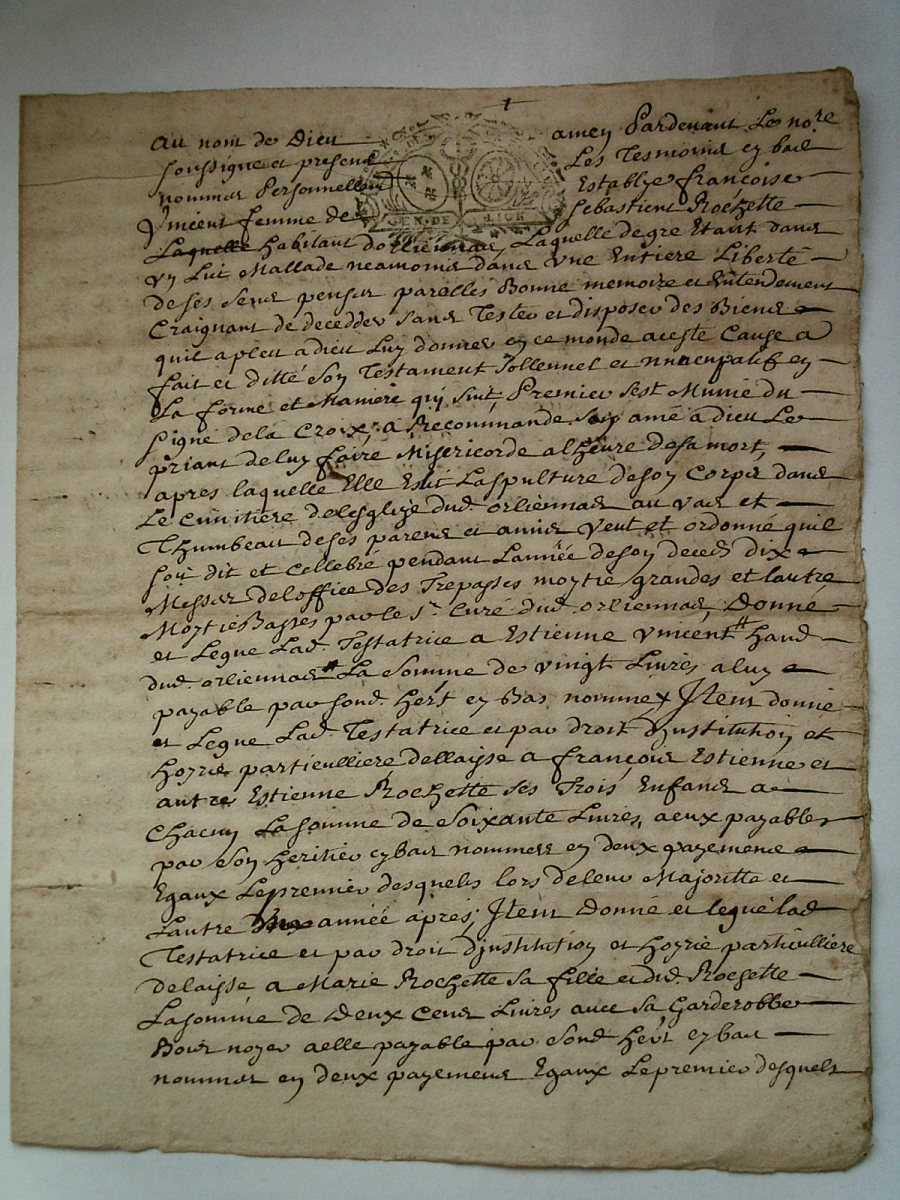 au nom de Dieu amen Pardevant Le no.re
soussigne et presens Les Tesmoins cy bas
nommes Personnellem.t Establye françoise
Vincent femme de Sebastient Rochette
GEN. DE LION
Laquelle habitant dorliennas, Laquelle de gre Etant dans
un Lict Mallade neamoins dans une Entiere Liberté
de ses sens pensees parolles Bonne memoire et Entendement
Craignant de deceder sans Tester et disposer des Biens
quil a pleu a dieu Luy donner en ce monde a ceste Cause a
fait et ditté son Testament sollennel et nuncupatif en
La forme et Maniere qui suit, Premier sest Munie du
signe de la Croix, a Recommande son ame a dieu Le
priant de luy faire Misericorde a lheure de sa mort,
apres laquelle Elle Eslit La spulture de son Corps dans
Le cimitiere de lesglize dud. orliennas au vas et
Thumbeau de ses parens et amis veut et ordonne quil
soit dit et cellebré pendant L'année de son deces dix
Messes de loffice des Trepasses moytie grandes et lautre
Moytie Basses par le s.r Curé dud. orliennas, Donne
et Legue Lad. Testatrice a Estienne Vincent # hand
dud. orliennas # La somme de vingt Livres a luy
payable par sond. hert en Bas nomme x Item donne
et Legue Lad. Testatrice et par droit d'institution et
hoyrie particulliere dellaisse a françois Estienne et
autre Estienne Rochette ses Trois Enfans a
Chacun La somme de Soixante Livres, a eux payables
par son heritier cy bas nommes en deux payemens
Egaux Le premier desquels lors de leur Majoritte et
Lautre année apres; Item Donne et legue lad
Testatrice et par droit d'institution et hoyrie particulliere
delaisse a Marie Rochette sa fille et dud. Rochette
La somme de Deux Cens Livres avec sa Garderobbe
Bois noyer a elle payable par sond hert cy bas
nommes en deux payemens Egaux Le premier desquels